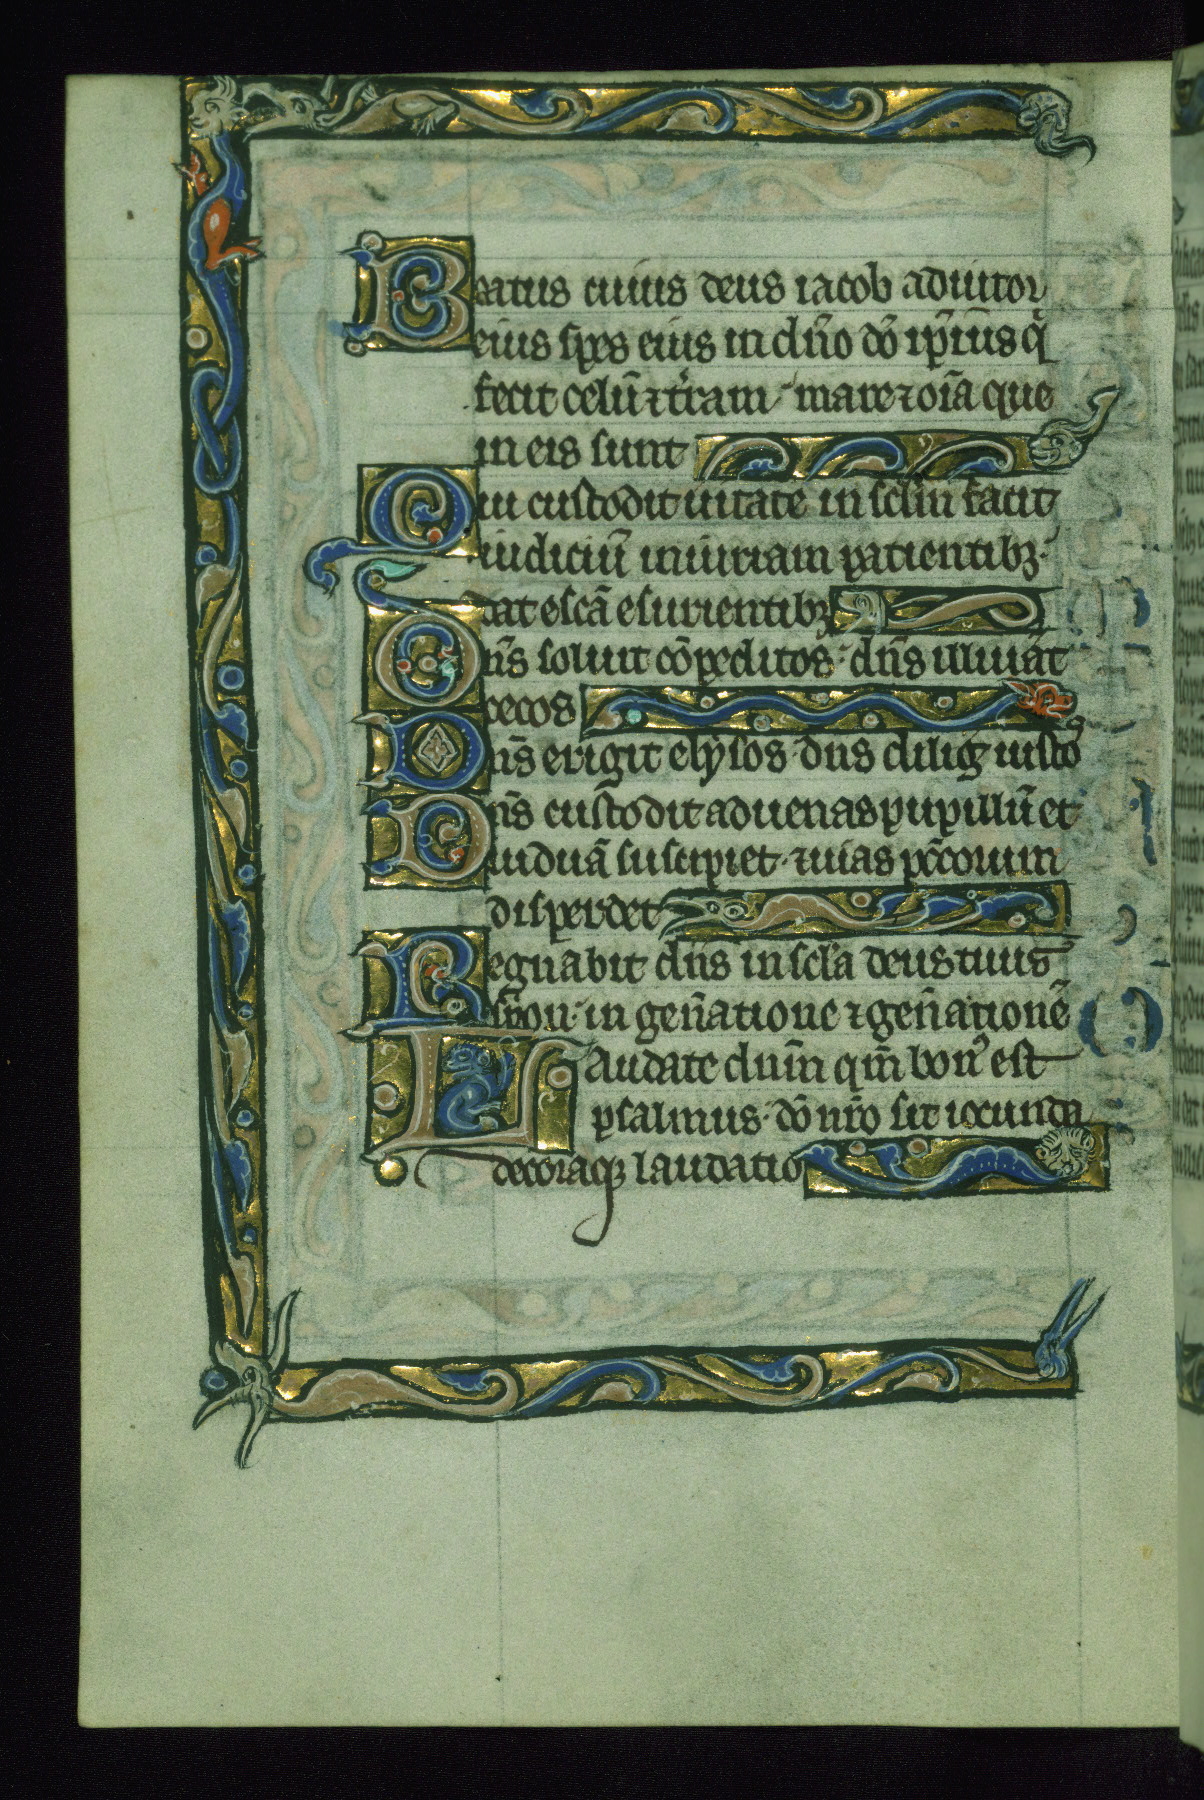 Beatus cuius deus iacob adiutor
eius spes eius in dn̄o dō ip̄ius q̇
fecit celū ⁊ t̓ram · mare ⁊ oīa que
in eis sunt
Qui custodit uitatē in sclm̄ facit
iudiciū iniuriam patientibꝫ ·
dat escā esurientibꝫ
Dn̄s soluit cōpeditos · dn̄s illuiāt
cecos
Dn̄s erigit elysos · dn̄s diligꝫ iusto
Dn̄s custodit aduenas pupillū et
uiduā suscipiet · ⁊ uias pc̄corum
disperdet
Regnabit dn̄s in scl̄a deus tuus
syon · in gen̄atione ⁊ gen̄ationē
Laudate dnm̄ qm̄ bon᷒ est
psalmus · dō nr̄o sit iocunda
decoraqꝫ laudatio